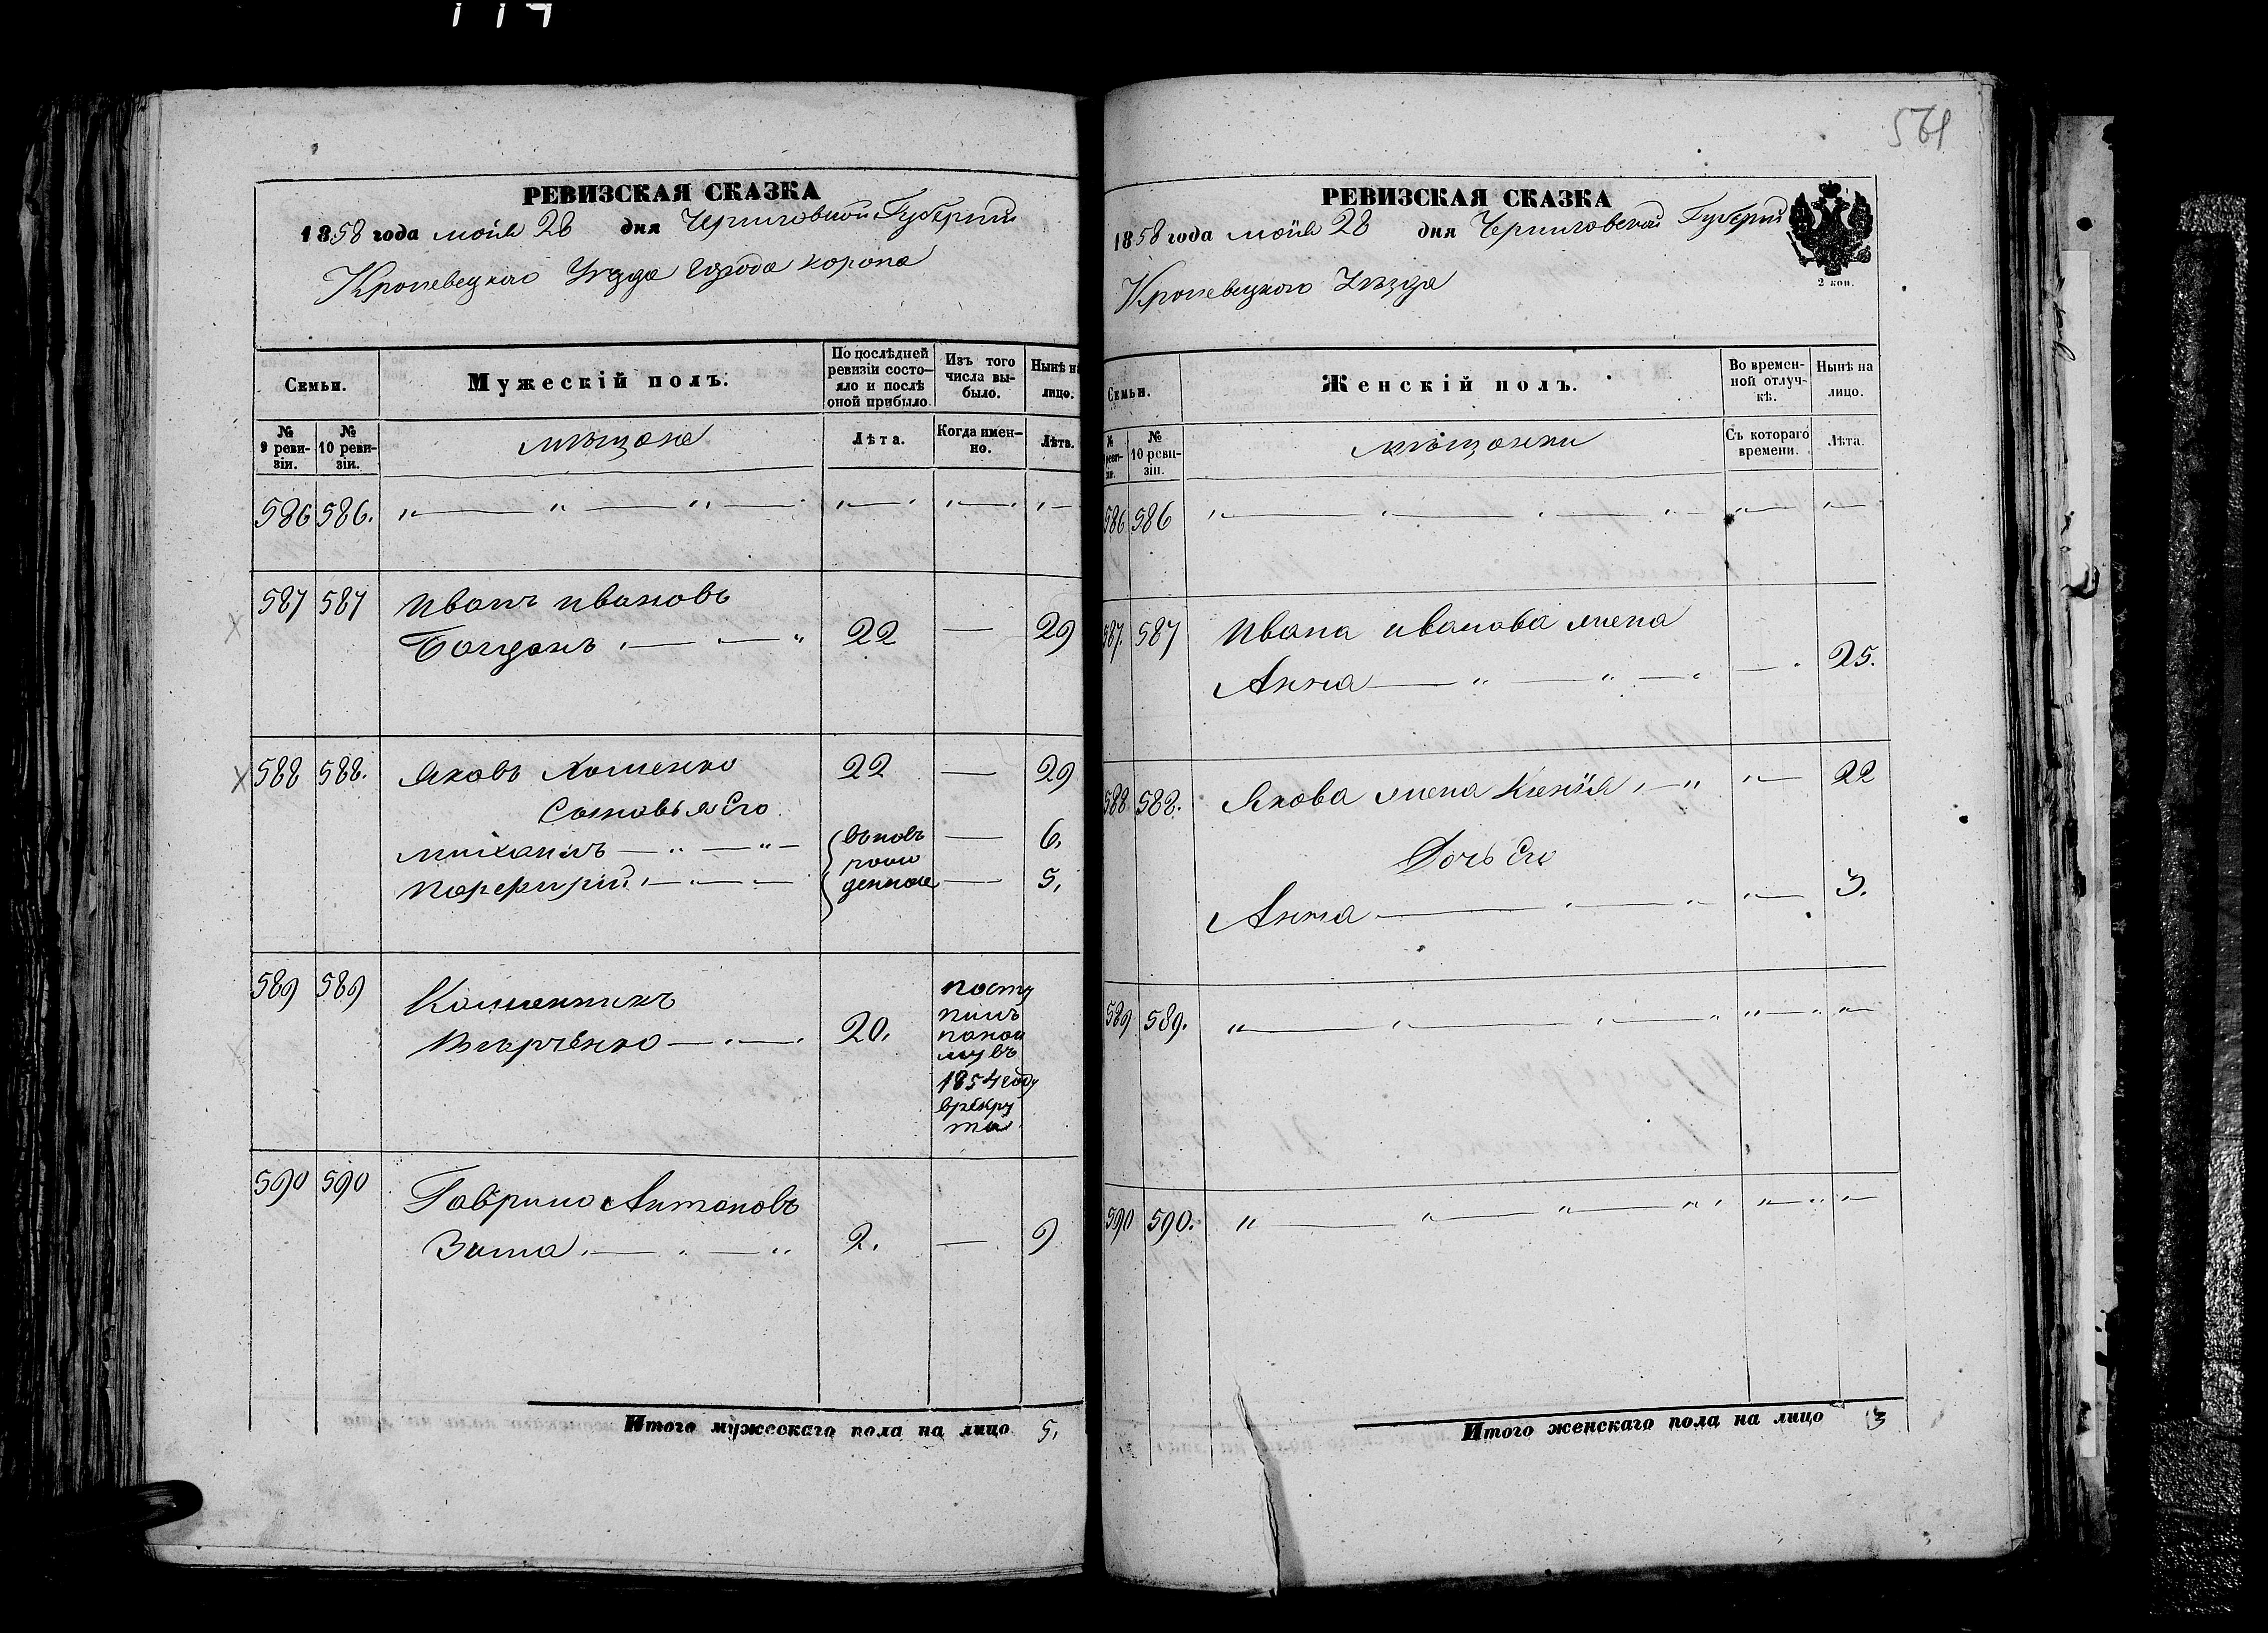 561
РЕВИЗСКАЯ СКАЗКА
1858 года мaiя 28 дня Черниговской Губернии
Кролевецкого Уезда города Коропа
Семьи.
Мужескій полъ.
По послѣдней ревизіи состояло и послѣ оной прибыло
Изъ того числа выбыло.
Нынѣ на лицо.
№ 9 ревизіи.
№ 10 ревизіи.
мѣщане
Лѣта.
Когда именно.
Лѣта.
586 586. " — " — " — " — " — " —
587 587 Иванъ Ивановъ
Богданъ — — " 22 — 29
588 588. Яковъ Хоменко 22 — 29
Сыновья Его
Михаилъ — " — " — вновь — 6.
рож
Порфирий — " — — денные — 5.
589 589
Марченко — — 20.
посту
пилъ
по
му въ
1854 году
врекру
ты
590 590 Гаврило Антоновъ
Зима — — " 2. — 9
Итого мужескаго пола на лицо 5.
РЕВИЗСКАЯ СКАЗКА
1858 года маiя 28 дня Черниговской Губернии
2 коп.
Кролевецкого Уѣзда
Семьи.
Женскій полъ.
Во временной отлучкѣ.
Нынѣ на лицо.
№ 9 ревизіи.
№ 10 ревизіи.
мѣщанки
Съ котораго времени.
Лѣта.
586 586 " — " — " — " — " — " —
587. 587 Ивана Иванова жена
Анна — " — " — " — 25.
588 588. Якова жена Ксенiя — " " — 22
Дочь Его
Анна — — " — 3.
589 589. " — " — " — " " — " —
590 590. " — " — " — " " — " —
Итого женскаго пола на лицо 3